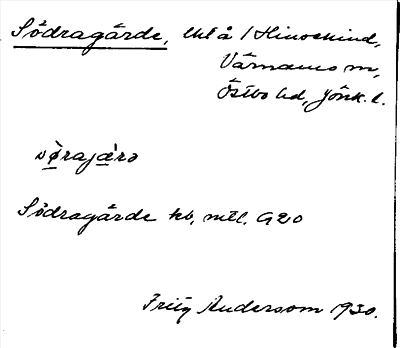 Södragårde, lht å 1 Hinsekind,
Värnamo sn,
Östbo hd, Jönk. l.
sø̀rajæ̀rə
Södragårde kb, mtl. G20
Fritz Andersson 1930.